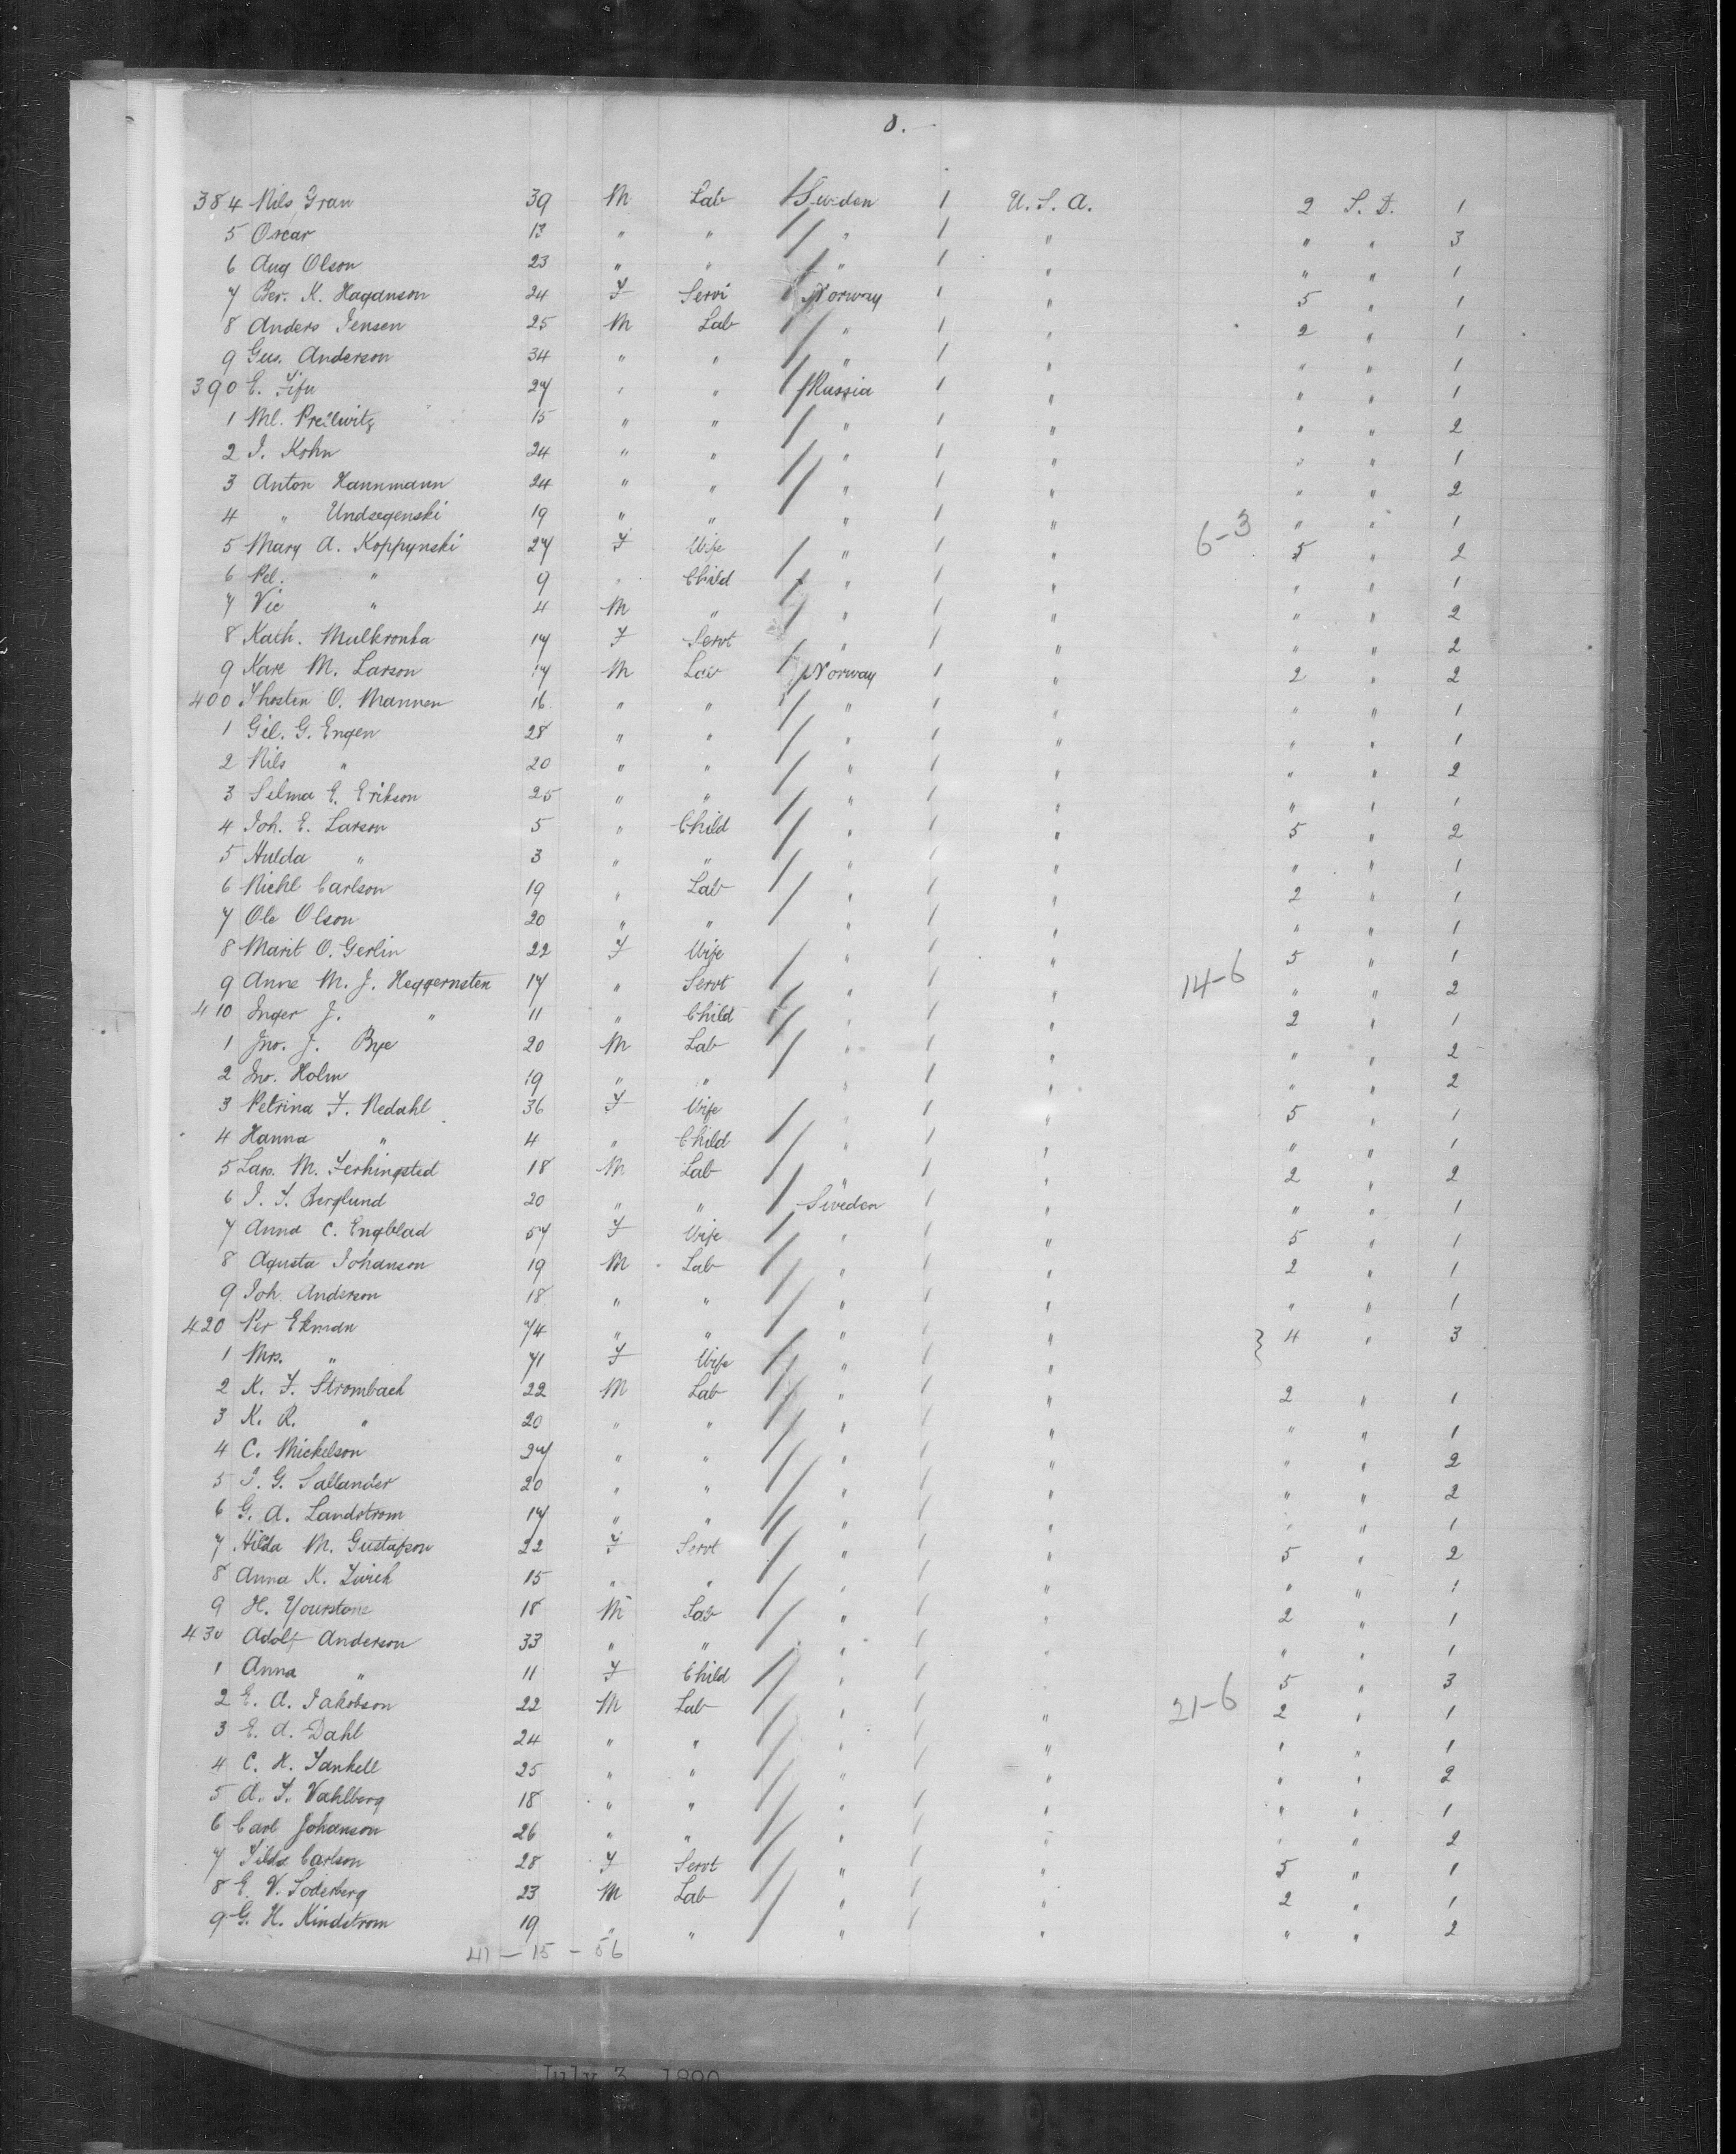 8.
384 Nils Gran 39 M Lab / Sweden 1 U. S. A. 2 S. D. 1
5 Oscar 13 " " / " 1 " " " 3
6 Aug Olson 23 " " / " 1 " " " 1
7 Ber. K. Haganson 24 F Servt / Norway 1 " 5 " 1
8 Anders Jensen 25 M Lab / " 1 " 2 " 1
9 Gus. Anderson 34 " " / " 1 " " " 1
390 E. 27 " " / Russia 1 " " " 1
1 Ml. 15 " " / " 1 " " " 2
2 I. Kohn 24 " " / " 1 " " " 1
3 Anton Hannmann 24 " " / " 1 " " " 2
4 " Undsegenski 19 " " " 1 " " " 1
5 Mary A. Koppynski 27 F Wife / " 1 " 6-3 5 " 2
6 Pel. " 9 " Child / " 1 " " " 1
7 Vic " 4 M " / " 1 " " " 2
8 Kath. Mulkronka 17 F Servt / " 1 " " " 2
9 Kare M. Larson 17 M Lab / Norway 1 " 2 " 2
400 Thosten O. Mannen 16 " " / " 1 " " " 1
1 Gil. G. Engen 28 " " / " 1 " " " 1
2 Nils " 20 " " / " 1 " " " 2
3 Selma E. Erikson 25 " " / " 1 " " " 1
4 Joh. E. Larson 5 " Child / " 1 " 5 " 2
5 Hulda " 3 " " / " 1 " " " 1
6 Michl Carlson 19 " Lab / " 1 " 2 " 1
7 Ole Olson 20 " " " 1 " " " 1
8 Marit O. Gerlin 22 F Wife / " 1 " 5 " 1
9 Anne M. J. Heggernsten 17 " Servt / " 1 " 14-6 " " 2
410 Inger J. " 11 " Child / " 1 " 2 " 1
1 Jno. J. Bye 20 M Lab / " 1 " " " 2
2 Jno. Holm 19 " " " 1 " " " 2
3 Petrina F. Nedahl 36 F Wife / " 1 " 5 " 1
4 Hanna " 4 " Child / " 1 " " " 1
5 Lars. M. Ferhingsted 18 M Lab / " 1 " 2 " 2
6 I. S. Berglund 20 " " / Sweden 1 " " " 1
7 Anna C. Engblad 57 F Wife / " 1 " 5 " 1
8 Agusta Johanson 19 M Lab / " 1 " 2 " 1
9 Joh. Anderson 18 " " / " 1 " " " 1
420 Per Ekman 74 " " / " 1 " } 4 " 3
1 Mrs. " 71 F Wife / " 1 "
2 K. F. Strombach 22 M Lab / " 1 " 2 " 1
3 K. R. " 20 " " / " 1 " " " 1
4 C. Mickelson 27 " " / " 1 " " " 2
5 I. G. Sallander 20 " " / " 1 " " " 2
6 G. A. Landstrom 17 " " / " 1 " " " 1
7 Hilda M. Gustafson 22 F Servt / " 1 " 5 " 2
8 Anna K. 15 " " / " 1 " " " 1
9 H. Yourstone 18 M Lab / " 1 " 2 " 1
430 Adolf Anderson 33 " " / " 1 " " " 1
1 Anna " 11 F Child / " 1 " 5 " 3
2 E. A. Jakobson 22 M Lab / " 1 " 21-6 2 " 1
3 E. A. Dahl 24 " " / " 1 " " " 1
4 C. H. Jankell 25 " " / " 1 " " " 2
5 A. S. Wahlberg 18 " " / " 1 " " " 1
6 Carl Johanson 26 " " / " 1 " " " 2
7 Tilda Carlson 28 F Servt / " 1 " 5 " 1
8 E. V. Soderberg 23 M Lab / " 1 " 2 " 1
9 G. H. Kindstrom 19 " " / " 1 " " " 2
41 - 15 - 56
July 3, 1890